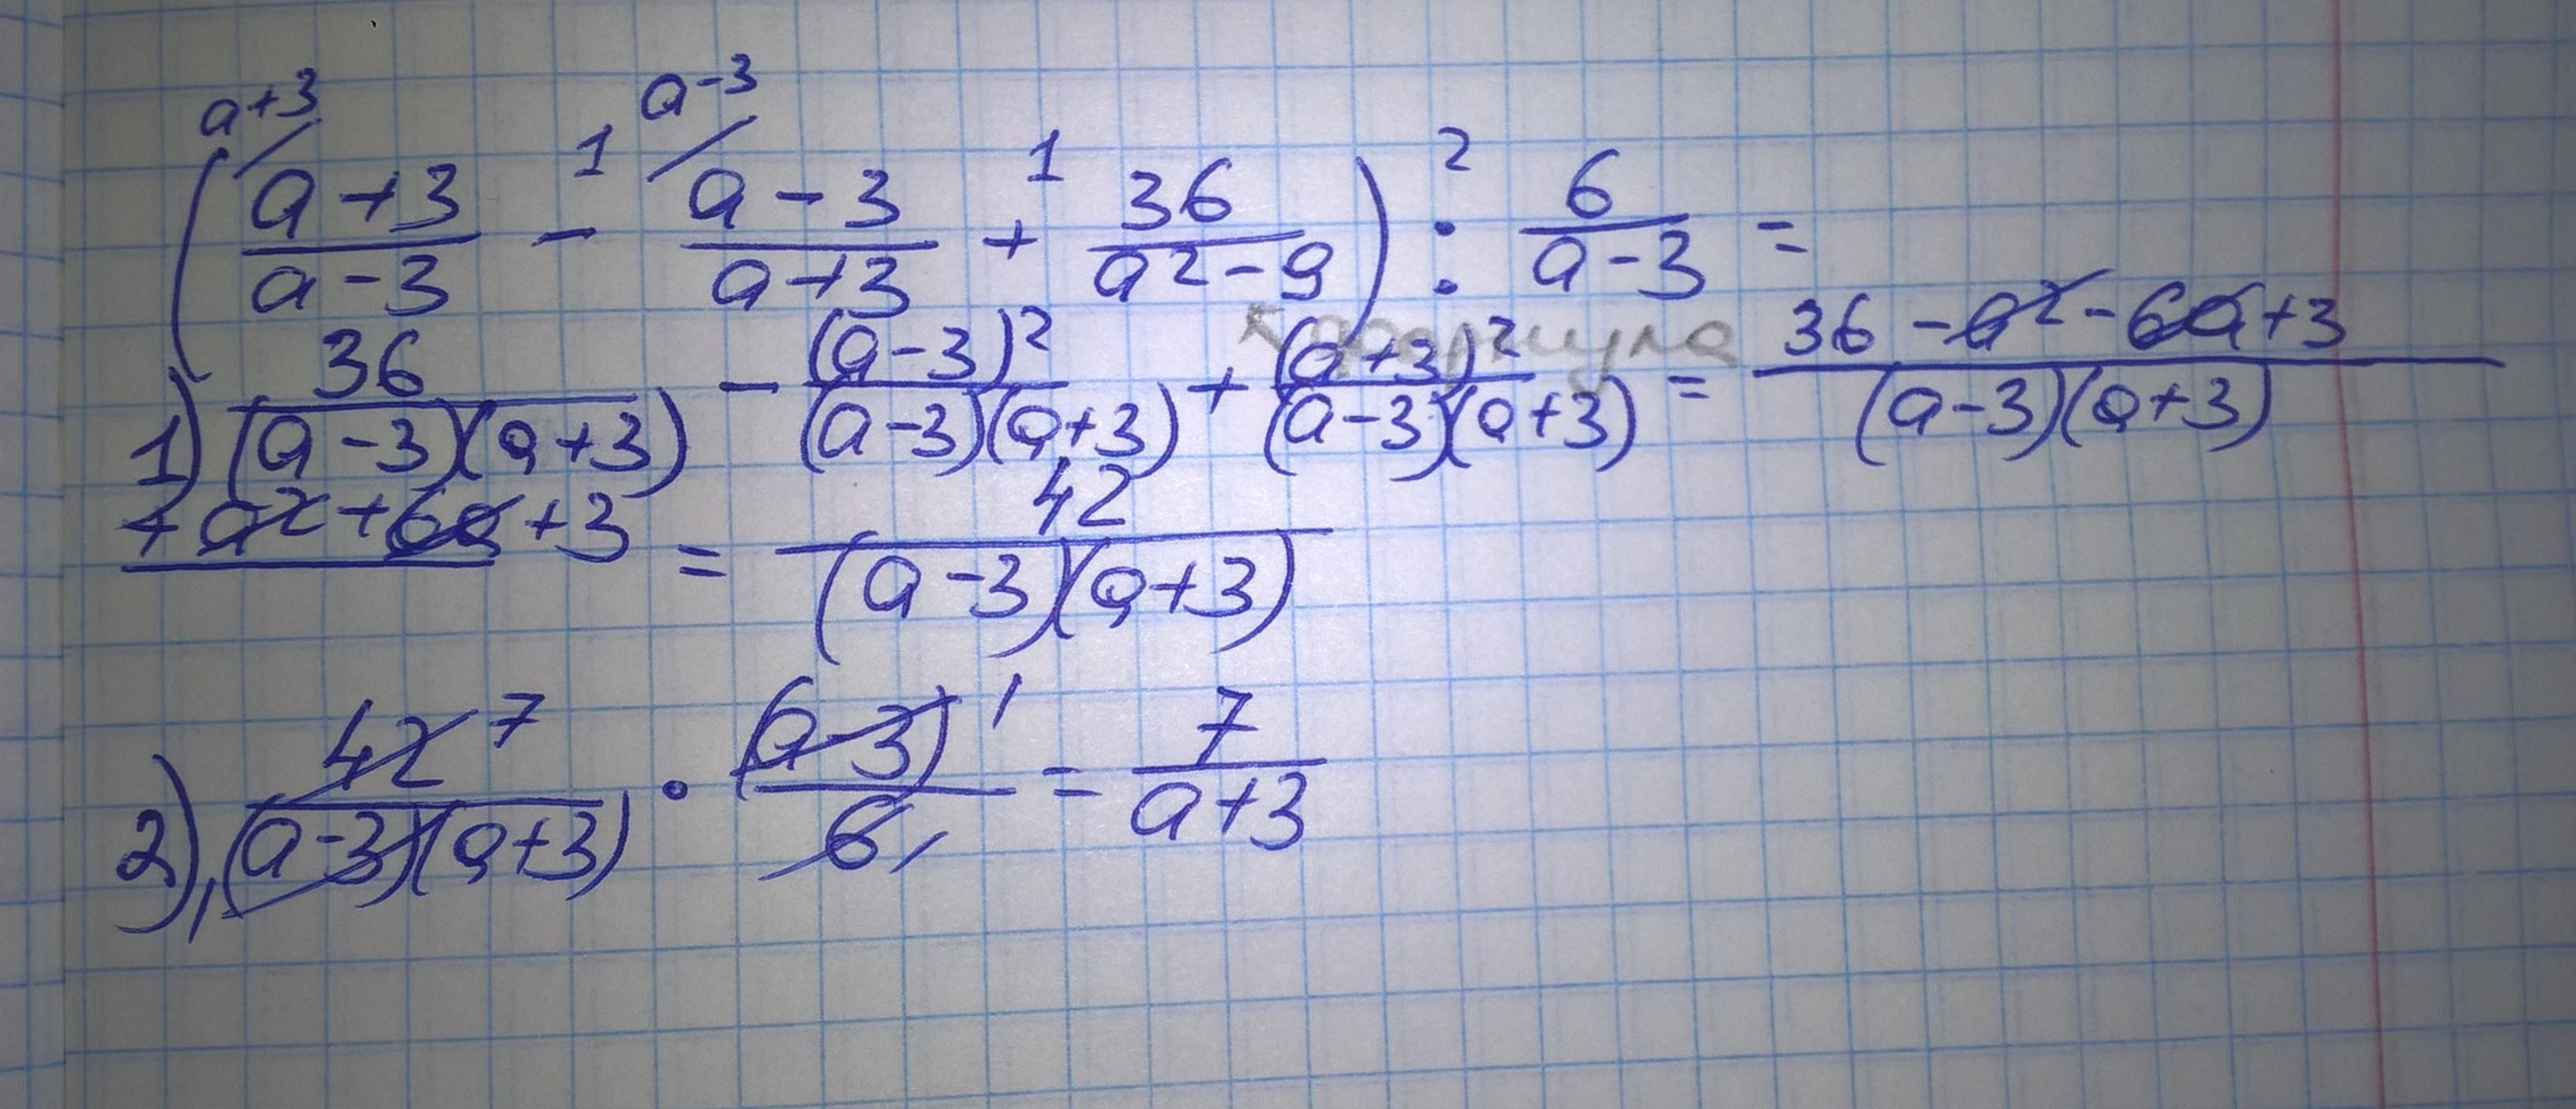 a+3 a-3
( (a+3)/(a-3) -¹ (a-3)/(a+3) +¹ 36/(a²-9) ) :² 6/(a-3) =
формула
1) 36/((a-3)(a+3)) - (a-3)²/((a-3)(a+3)) + (a+3)²/((a-3)(a+3)) = (36 - a² - 6a + 3)/((a-3)(a+3))
+ a² + 6a + 3 = 42/((a-3)(a+3))
2) 42 7/(1 (a-3)(a+3)) · (a-3) 1/(6 1) = 7/(a+3)